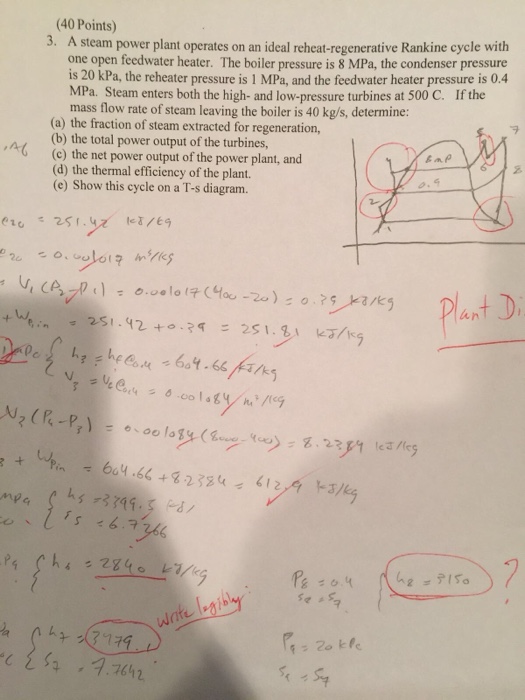 (40 Points)
3. A steam power plant operates on an ideal reheat-regenerative Rankine cycle with
one open feedwater heater. The boiler pressure is 8 MPa, the condenser pressure
is 20 kPa, the reheater pressure is 1 MPa, and the feedwater heater pressure is 0.4
MPa. Steam enters both the high- and low-pressure turbines at 500 C. If the
mass flow rate of steam leaving the boiler is 40 kg/s, determine:
(a) the fraction of steam extracted for regeneration,
(b) the total power output of the turbines,
(c) the net power output of the power plant, and
(d) the thermal efficiency of the plant.
(e) Show this cycle on a T-s diagram.
5 7
8mp 6 8
0.4
2
1
@20 = 251.42 kJ/kg
@20 = 0.001017 m³/kg
= V1(P2-P1) = 0.001017(400-20) = 0.39 kJ/kg
Plant Di
+ Wpin = 251.42 + 0.39 = 251.81 kJ/kg
h3 = hf@0.4 = 604.66 kJ/kg
V3 = Vf@0.4 = 0.001084 m³/kg
V3(P4-P3) = 0.001084(8000-400) = 8.2384 kJ/kg
3 + Wpin = 604.66 + 8.2384 = 612.9 kJ/kg
mpa { h5 = 3399.5 kJ/
s5 = 6.7266
Pa { h6 = 2840 kJ/kg
P8 = 0.4 { h8 = 3150 ?
s8 = s7
write legibly
h7 = 3479.
s7 = 7.7642
P9 = 20 kPa
s9 = s7